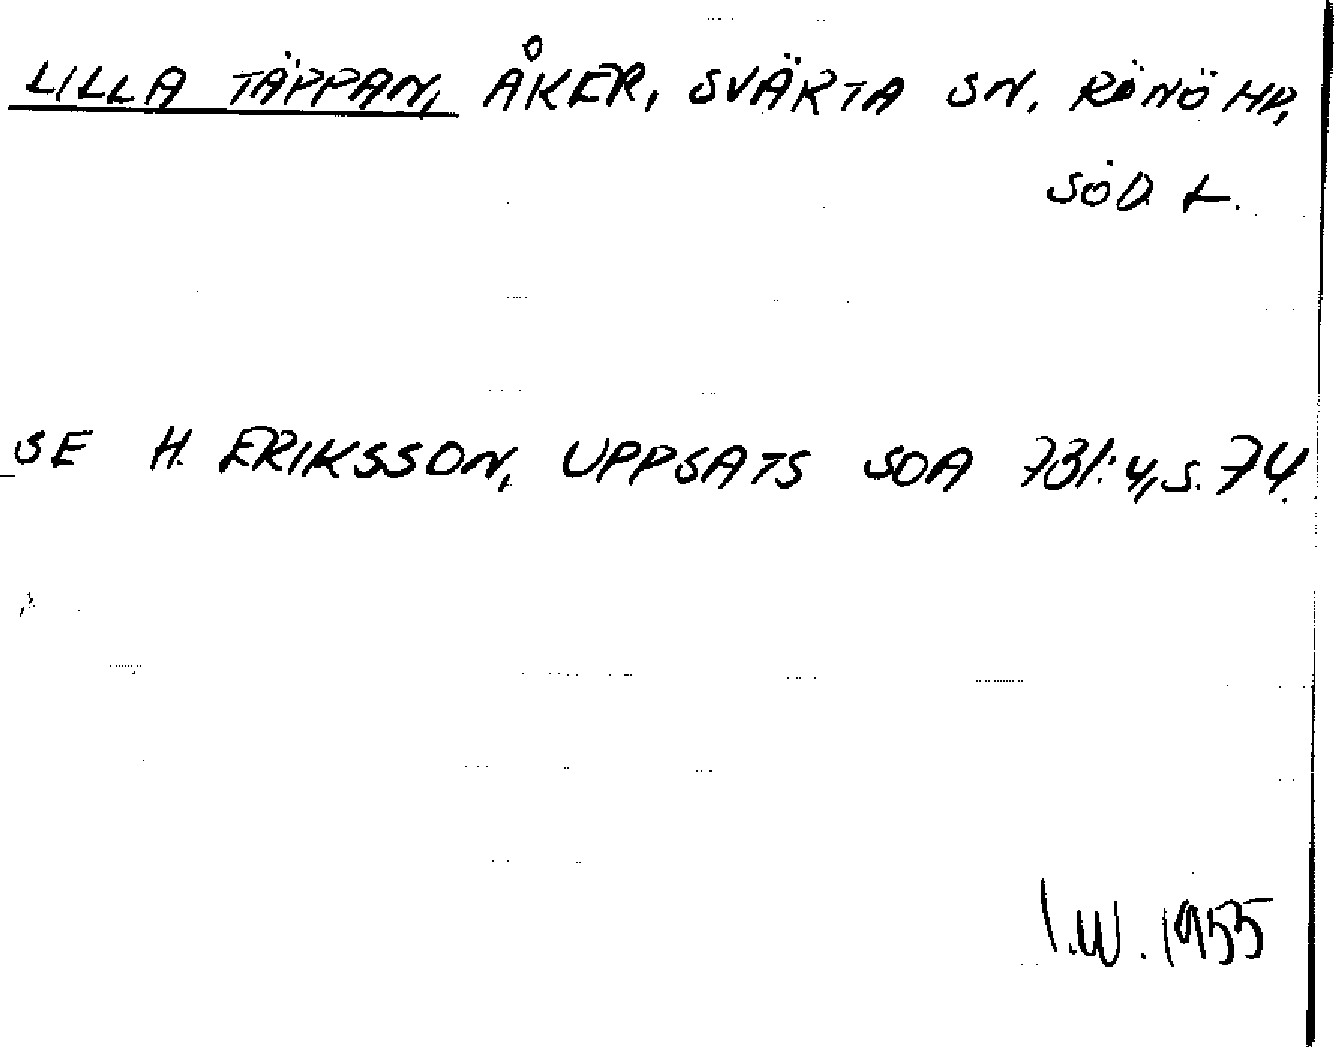 LILLA TÄPPAN, ÅKER, SVÄRTA SN, RÖNÖ HD,
SÖD. L.
SE H. ERIKSSON, UPPSATS SOA 731:4, S. 74.
I.W. 1955